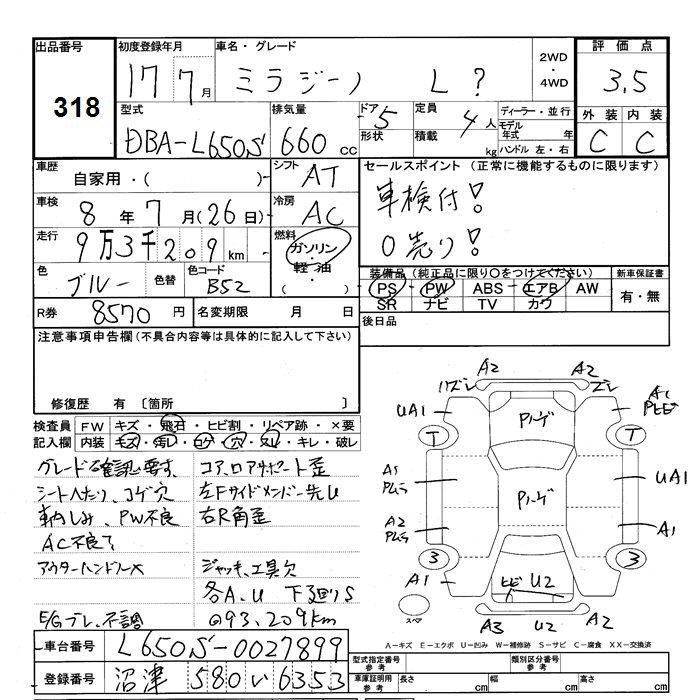 出品番号
318
初度登録年月
17 7月
車名・グレード
ミラジーノ L ?
2WD・4WD
評価点
3.5
型式
DBA-L650S
排気量
660 cc
ドア 5
形状
定員 4人
積載 kg
ディーラー・並行
モデル年式 年
ハンドル 左・右
外装 内装
C C
車歴
自家用・( )
シフト
AT
車検
8年7月(26日)
冷房
AC
走行
9万3千209km
燃料
ガソリン・軽油・( )
色
ブルー
色替
色コード
B52
R券
8570円
名変期限 月 日
セールスポイント (正常に機能するものに限ります)
車検付!
0売り!
装備品(純正品に限り〇をつけてください)
新車保証書
PS・PW・ABS・エアB・AW
SR ナビ TV カワ
有・無
後日品
注意事項申告欄(不具合内容等は具体的に記入して下さい)
修復歴 有〔箇所 〕
検査員記入欄
FW キズ・飛石・ヒビ割・リペア跡・×要
内装 キレ・破レ
グレード確認要す、
シートヘたり、コゲ穴
PW不良
AC不良?
アウターハンドル×
E/Gブレ、不調
コア、ロアサポート歪
左Fサイドメンバー先U
右R角歪
ジャッキ、工具欠
各A、U 下廻りS
@93,209km
A2
A2
UA1
A1
パノーゲ
パノーゲ
T
T
A1
UA1
A2
A1
3
3
A1
ヒビ U2
スペア
A3 U2 A2
A-キズ E-エクボ U-凹み W-補修跡 S-サビ C-腐食 XX-交換済
車台番号
L650S-0027899
登録番号
沼津 580 い 6353
型式指定番号 参考
類別区分番号 参考
車庫証明用 参考
長さ cm
幅 cm
高さ cm